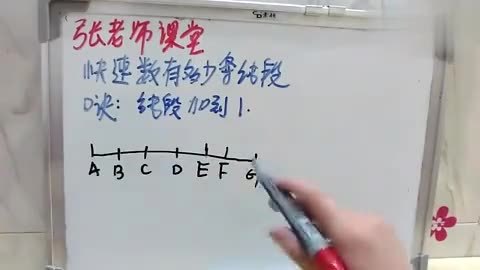 张老师课堂
快速数有多少条线段
口诀：线段加到1.
A B C D E F G